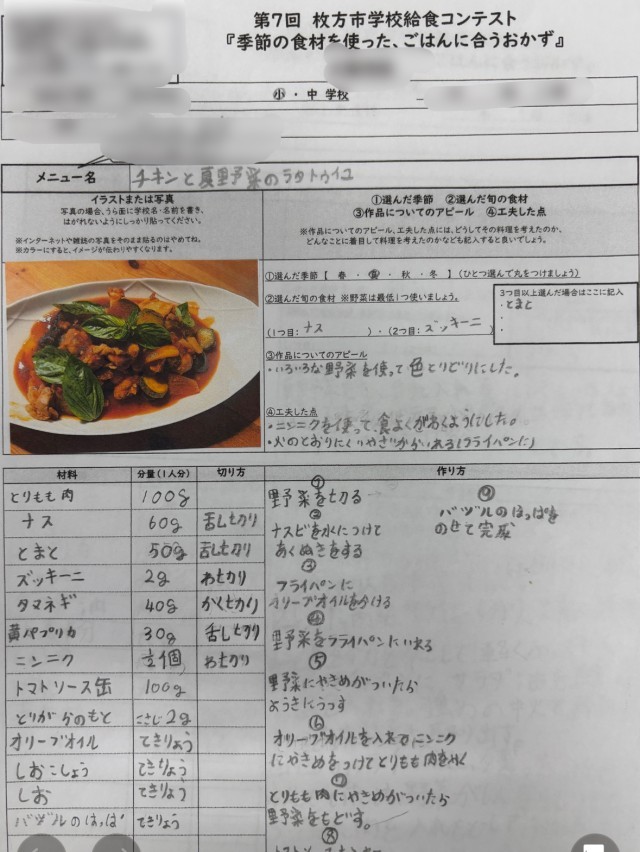 第7回 枚方市学校給食コンテスト
『季節の食材を使った、ごはんに合うおかず』
小・中 学校
メニュー名
チキンと夏野菜のラタトゥイユ
イラストまたは写真
写真の場合、うら面に学校名・名前を書き、
はがれないようにしっかり貼ってください。
※インターネットや雑誌の写真をそのまま貼るのはやめてね。
※カラーにすると、イメージが伝わりやすくなります。
①選んだ季節 ②選んだ旬の食材
③作品についてのアピール ④工夫した点
※作品についてのアピール、工夫した点には、どうしてその料理を考えたのか、
どんなことに着目して料理を考えたのかなども記入すると良いでしょう。
①選んだ季節【 春 ・ 夏 ・ 秋 ・ 冬 】(ひとつ選んで丸をつけましょう)
②選んだ旬の食材 ※野菜は最低1つ使いましょう。
(1つ目: ナス )・(2つ目: ズッキーニ )
3つ目以上選んだ場合はここに記入
・とまと
・
・
③作品についてのアピール
・いろいろな野菜を使って色とりどりにした。
④工夫した点
・ニンニクを使って、食よくがわくようにした。
・火のとおりにくいやさいからいれる(フライパンに)
材料 分量(1人分) 切り方
とりもも肉 100g
ナス 60g 舌し切り
とまと 50g 舌し切り
ズッキーニ 2g わ切り
タマネギ 40g かく切り
黄パプリカ 30g 舌し切り
ニンニク 1/2個 わ切り
トマトソース缶 100g
とりがらのもと こさじ2g
オリーブオイル てきりょう
しおこしょう てきりょう
しお てきりょう
バジルのはっぱ てきりょう
作り方
①
野菜を切る
②
ナスビを水につけて
あくぬきをする
③
フライパンに
オリーブオイルを分ける
④
野菜をフライパンにいれる
⑤
野菜にやきめがついたら
ようきにうつす
⑥
オリーブオイルを入れてニンニク
にやきめをつけてとりもも肉をやく
⑦
とりもも肉にやきめがついたら
野菜をもどす。
⑧
⑨
バジルのはっぱを
のせて完成